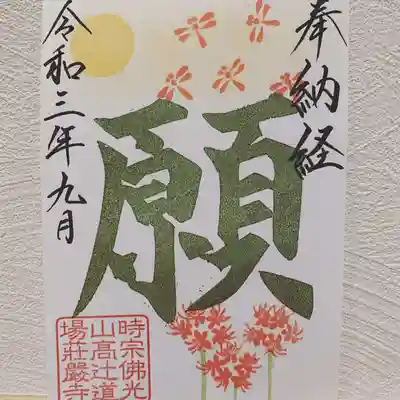 奉納経
願
令和三年九月
時宗佛光
山高辻道
場荘嚴寺